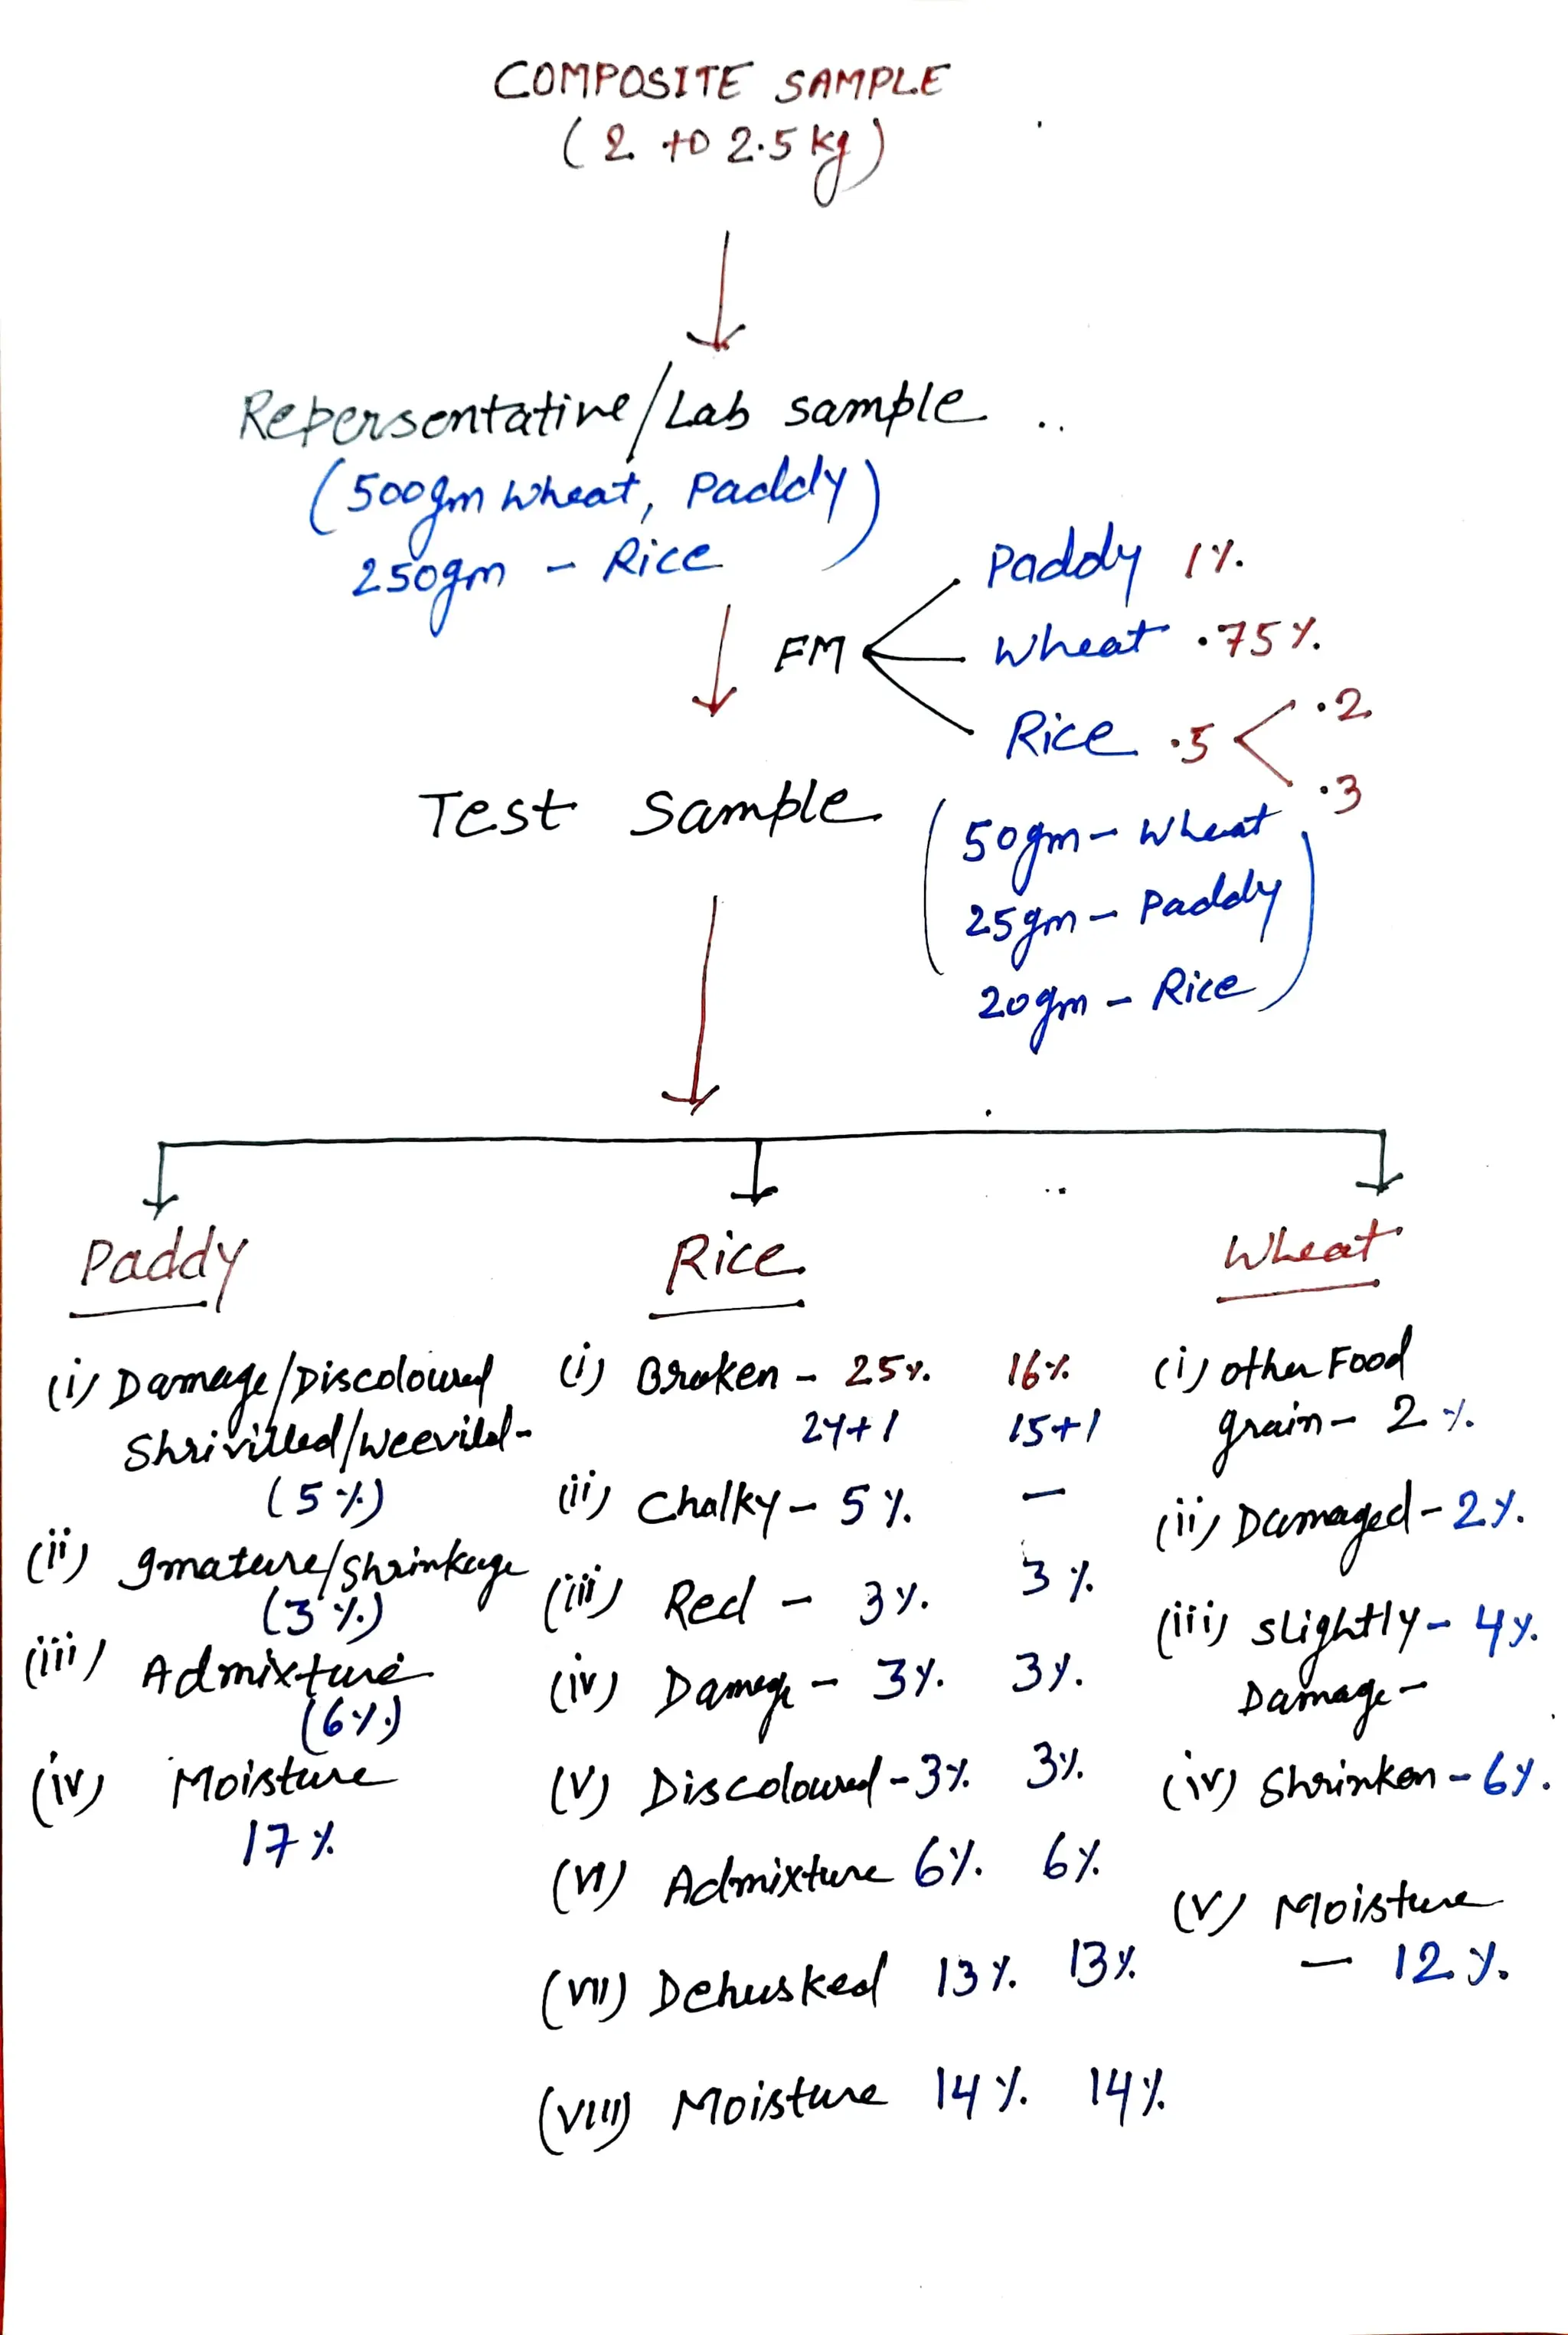 COMPOSITE SAMPLE
(2 to 2.5 kg)
Repersentative/Lab sample
(500gm wheat, Paddy)
250gm - Rice
FM
Paddy 1%
Wheat .75%
Rice .5
.2
.3
Test Sample
(50gm - Wheat
25gm - Paddy
20gm - Rice)
Paddy
(i) Damage/Discoloured
Shrivilled/weevild -
(5%)
(ii) Imature/shrinkage
(3%)
(iii) Admixture
(6%)
(iv) Moisture
17%
Rice
(i) Broken - 25% 16%
24+1 15+1
(ii) Chalky - 5% -
(iii) Red - 3% 3%
(iv) Damage - 3% 3%
(V) Discoloured - 3% 3%
(VI) Admixture 6% 6%
(VII) Dehusked 13% 13%
(VIII) Moisture 14% 14%
Wheat
(i) other Food
grain - 2%
(ii) Damaged - 2%
(iii) slightly - 4%
Damage -
(iv) Shrinken - 6%
(V) Moisture
- 12%